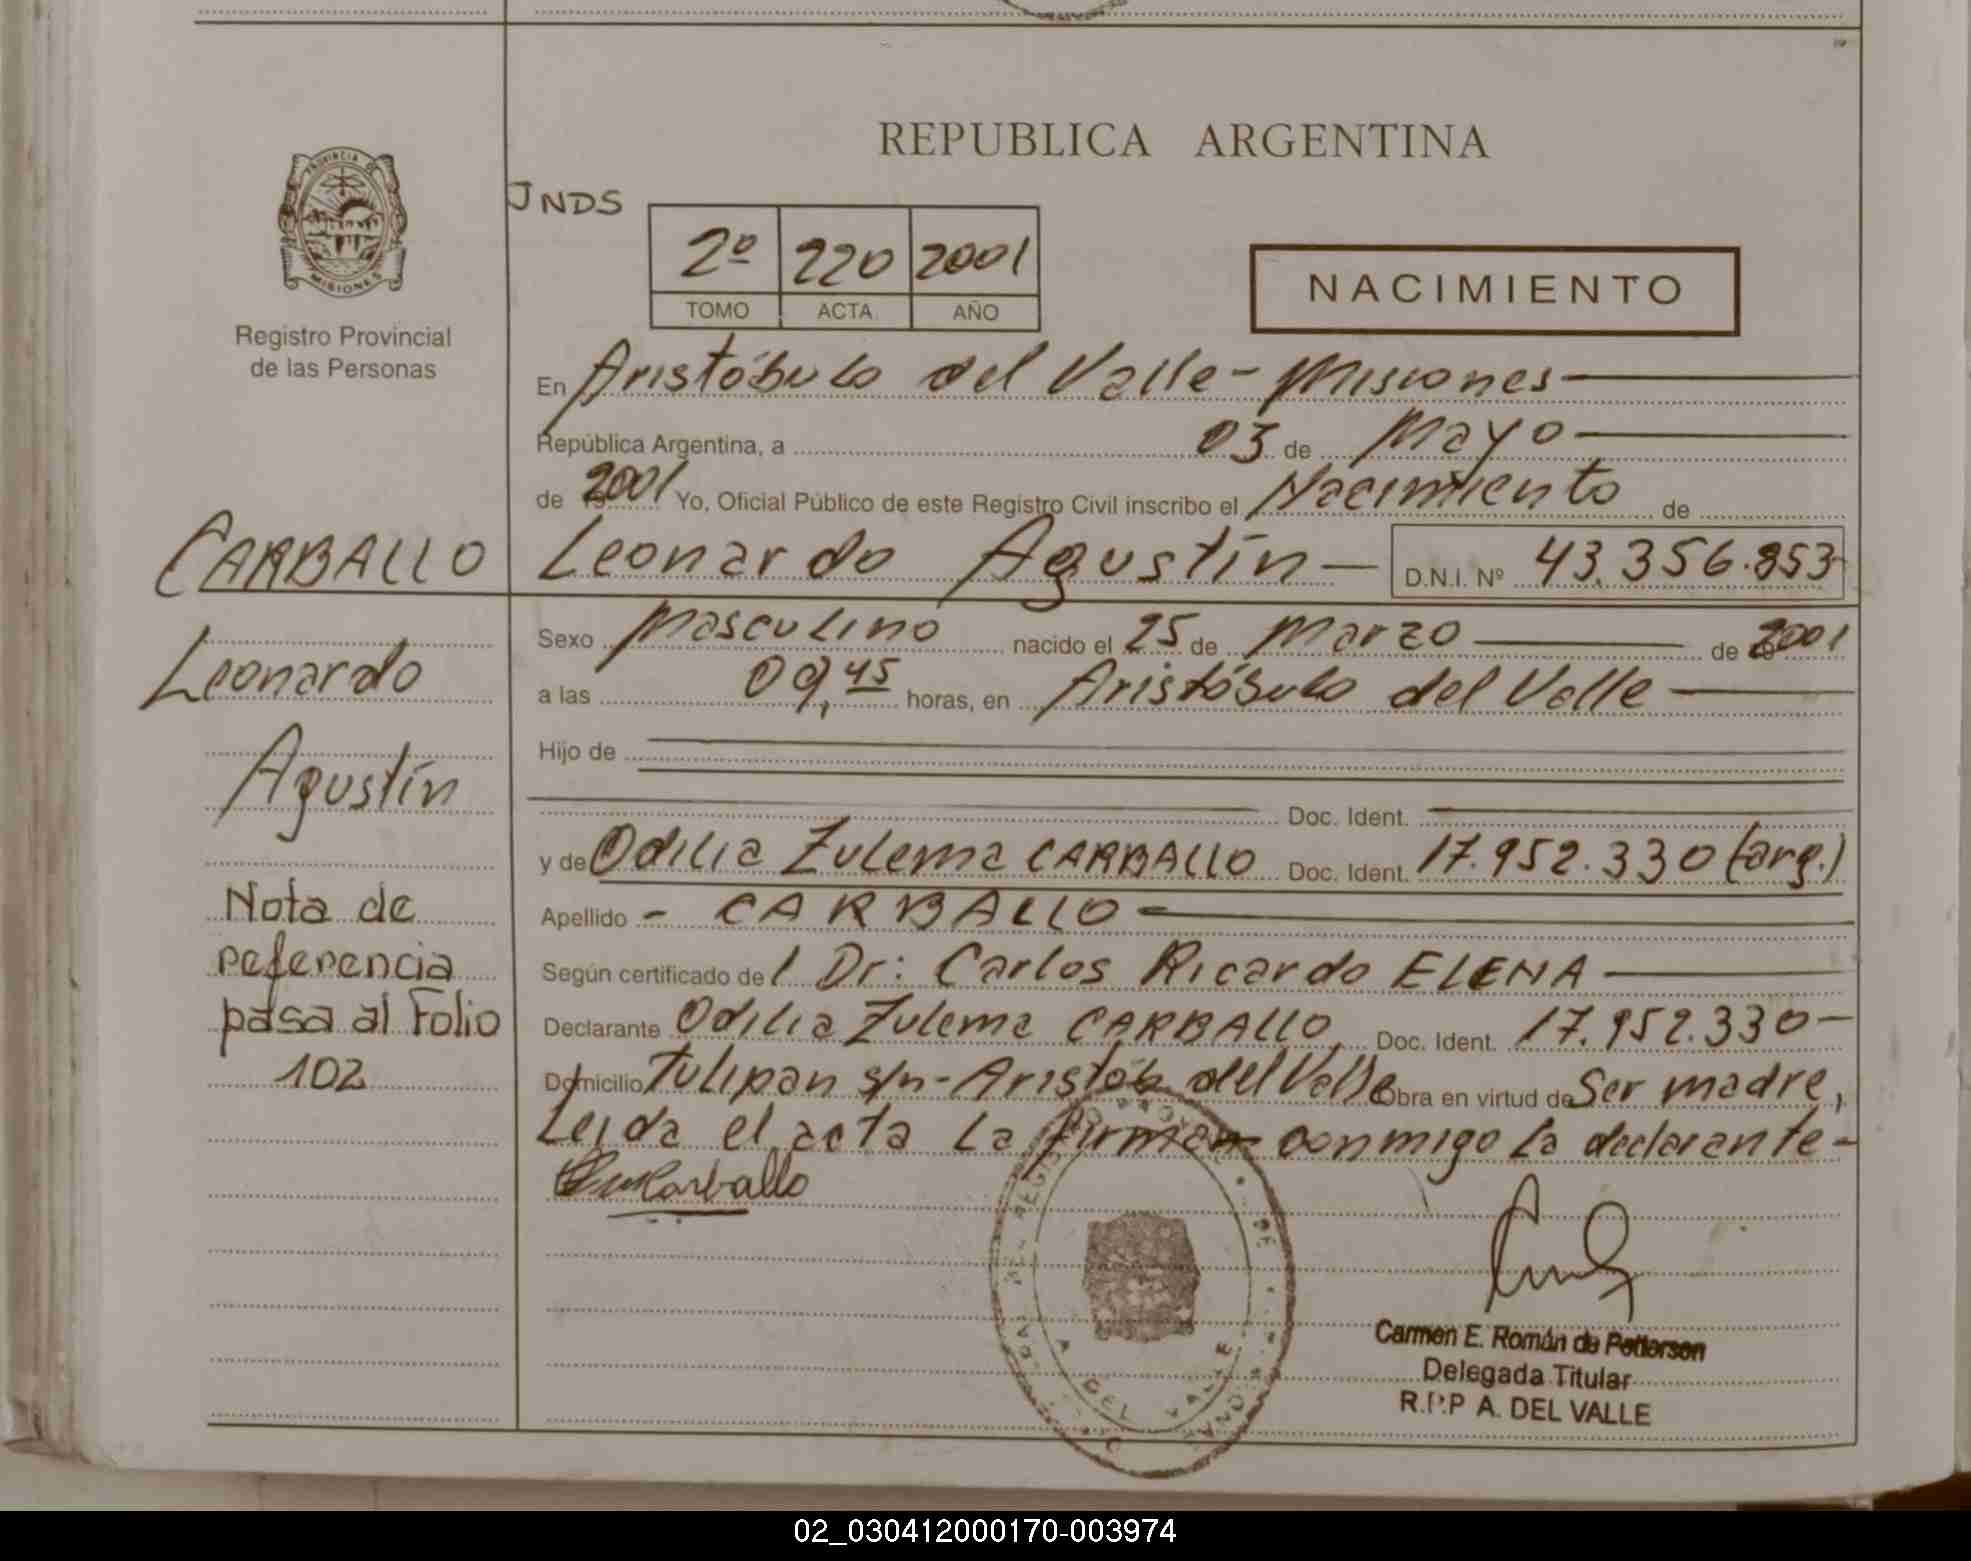 REPUBLICA ARGENTINA
PROVINCIA DE
MISIONES
Registro Provincial
de las Personas
JNDS
2º 220 2001
TOMO ACTA AÑO
NACIMIENTO
En Aristóbulo del Valle - Misiones
República Argentina, a 03 de Mayo
de 2001 Yo, Oficial Público de este Registro Civil inscribo el Nacimiento de
CARBALLO Leonardo Agustín D.N.I. Nº 43.356.853
Leonardo
Agustín
Nota de
referencia
pasa al Folio
102
Sexo Masculino nacido el 25 de Marzo de 2001
a las 09,45 horas, en Aristóbulo del Valle
Hijo de
Doc. Ident.
y de Odilia Zulema CARBALLO Doc. Ident. 17.952.330 (arg.)
Apellido - CARBALLO -
Según certificado del Dr: Carlos Ricardo ELENA
Declarante Odilia Zulema CARBALLO, Doc. Ident. 17.952.330 -
Domicilio Tulipan s/n - Aristób del Valle Obra en virtud de Ser madre,
Leida el acta la firman conmigo la declarante -
Carballo
A DEL VALLE
Carmen E. Román de Petterson
Delegada Titular
R.P.P A. DEL VALLE
02_030412000170-003974